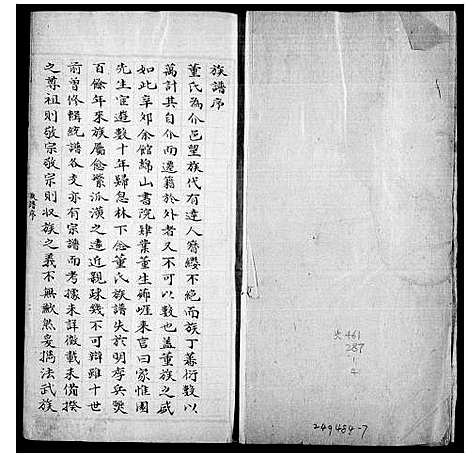 族譜序
董氏為介邑望族代有達人簪纓不絕而族丁蕃衍數以
萬計其自介而遷籍於外者又不可以數也蓋董族之盛
如此辛卯余館綿山書院肄業董生 來言曰家惟園
先生宦遊數十年歸息林下念董氏族譜失於明季兵燹
百餘年來族屬愈繁派漢之遠近親疎幾不可辯雖十世
前曾修輯統譜各支亦有宗譜而考據未詳微載未備揆
之尊祖則敬宗敬宗則收族之義不無歉然爰擕法武族
族譜序
史461
287
1
4
249484-7